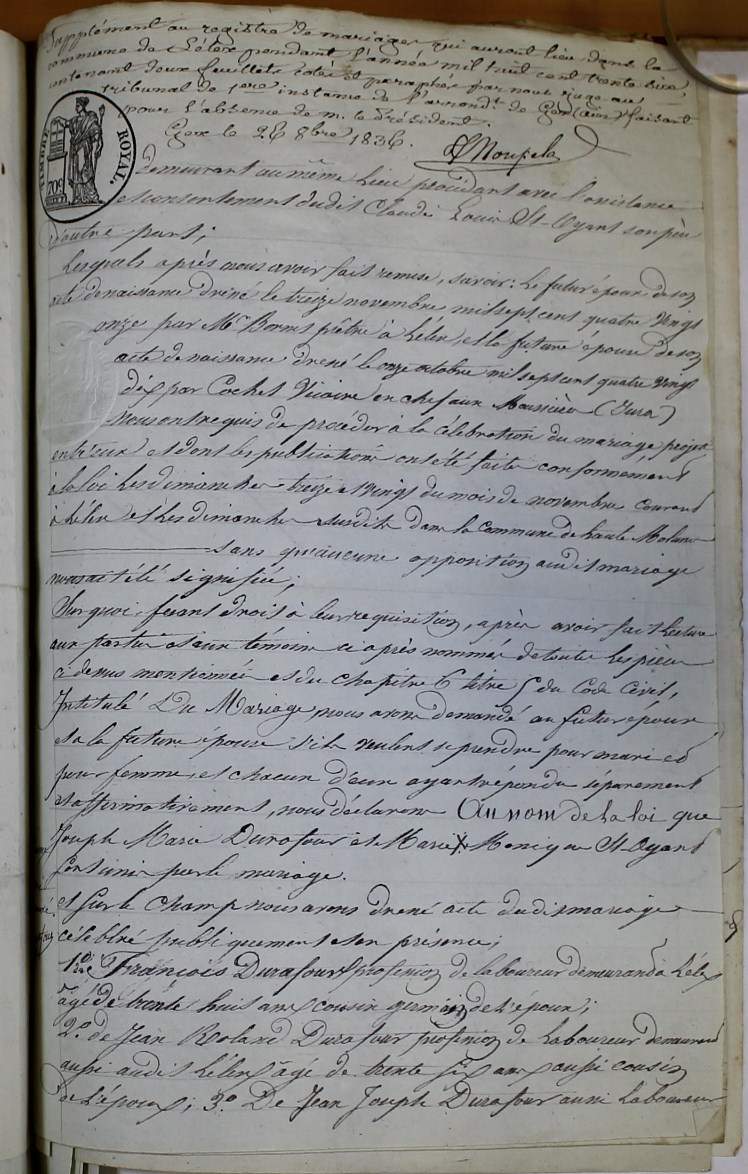 Supplément au registre de mariages, qui auront lieu dans la
commune de Lélex pendant l'année mil huit cent trente six,
contenant deux feuillets cotés et paraphés par nous juge au
tribunal de 1ere instance de l'arrondt. de Gex (Ain) faisant
pour l'absence de m. le Président.
Gex le 26 8bre 1836.
TIMBRE ROYAL.
70c
demeurant au même lieu procédant avec l'assistance
et consentement dudit Claude Louis St-Oyant son père
d'autre part;
Lesquels après nous avoir fait remise, savoir: le futur époux de son
acte de naissance dressé le treize novembre mil sept cent quatre vingt
onze par Mr prêtre à Lélex, et la future épouse de son
acte de naissance dressé le onze octobre mil sept cent quatre vingt
dix par Cochet Vicaire en chef aux Moussières (Jura)
nous ont requis de procéder à la célébration du mariage projeté
entr'eux et dont les publications ont été faites conformément
à la loi les dimanches treize et vingt du mois de novembre courant
à Lélex et les dimanches susdits dans la commune de haute Molune
sans qu'aucune opposition audit mariage
nous ait été signifiée;
Sur quoi, fesant droit à leur requisition, après avoir fait lecture
aux parties et aux témoins ci après nommés de toutes les pièces
ci dessus mentionnées et du chapitre 6 titre 5 du Code Civil,
Intitulé Du Mariage nous avons demandé au futur époux
et à la future épouse s'ils veulent se prendre pour mari et
pour femme, et chacun d'eux ayant répondu séparement
et affirmativement, nous déclarons Au nom de la loi que
Joseph Marie Durafour et Marie Monique St-Oyant
sont unis par le mariage.
et sur le champ nous avons dressé acte dudit mariage
célébré publiquement en présence;
1º de François Durafour profession de laboureur demeurant à Lélex
âgé de trente huit ans cousin germain de l'époux;
2º de Jean Roland Durafour profession de laboureur demeurant
aussi audit Lélex âgé de trente six ans aussi cousin
de l'époux; 3º De Jean Joseph Durafour aussi laboureur